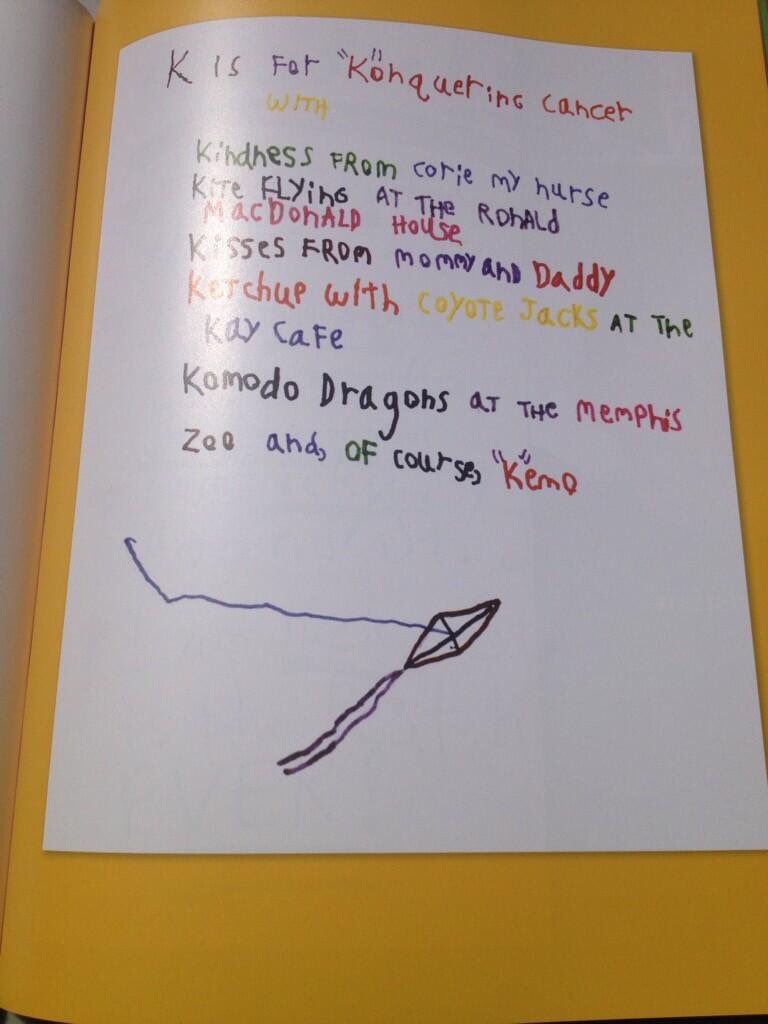 K is For "Konquering cancer
WITH
Kindness FROM corie my nurse
KiTE FLYinG AT THE RonAld
MacDonALD House
Kisses FROM mommy and Daddy
KeTchup with coyote Jacks AT The
Kay CaFe
Komodo Dragons aT THE Memphis
Zoo and, OF course, "Kemo